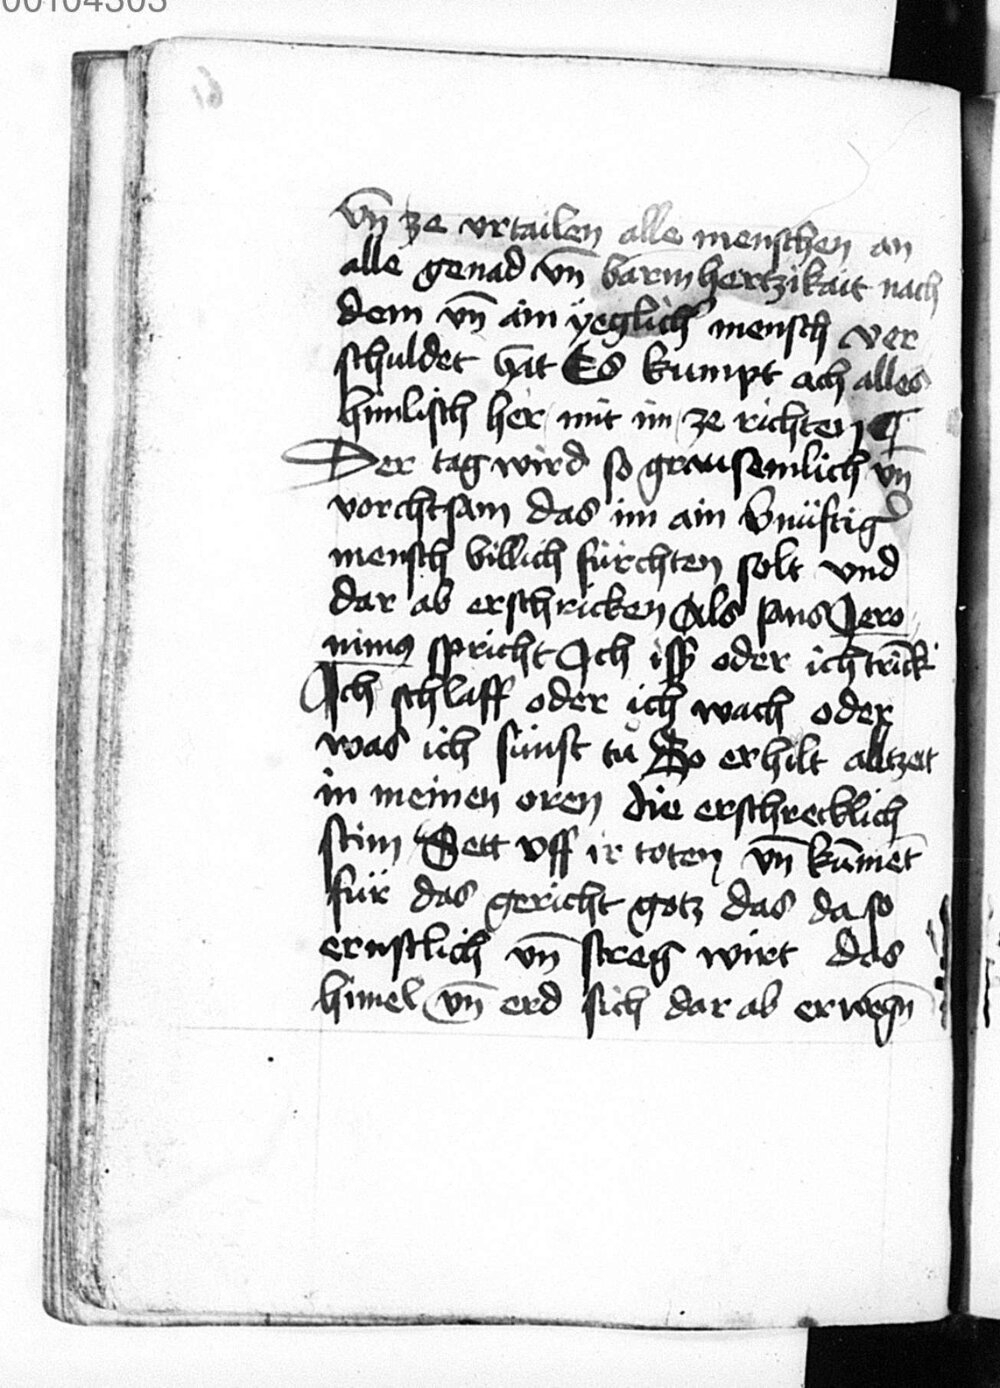 00104303
vn̄ ze vrtailen alle menschen an
alle genad vn̄ barmhertzikait nach
dem vn̄ ain yeglich mensch ver
schuldet hat Es kumpt och alles
himlisch her mit im ze richten ¶
Der tag wird so grausemlich vn̄
vorchtsam das im ain vnüftig
mensch billich fürchten solt vnd
dar ab erschricken Als sans Jero
nimus spricht Ich iss oder ich trinck
Ich schlaff oder ich wach oder
was ich sunst tů So erhilt alltzeit
in meinen oren die erschrecklich
stim Stett vff ir toten vn̄ kūmet
für das gericht gotz das da so
ernstlich vn̄ streg wirt das
himel vn̄ erd sich dar ab erwegn̄